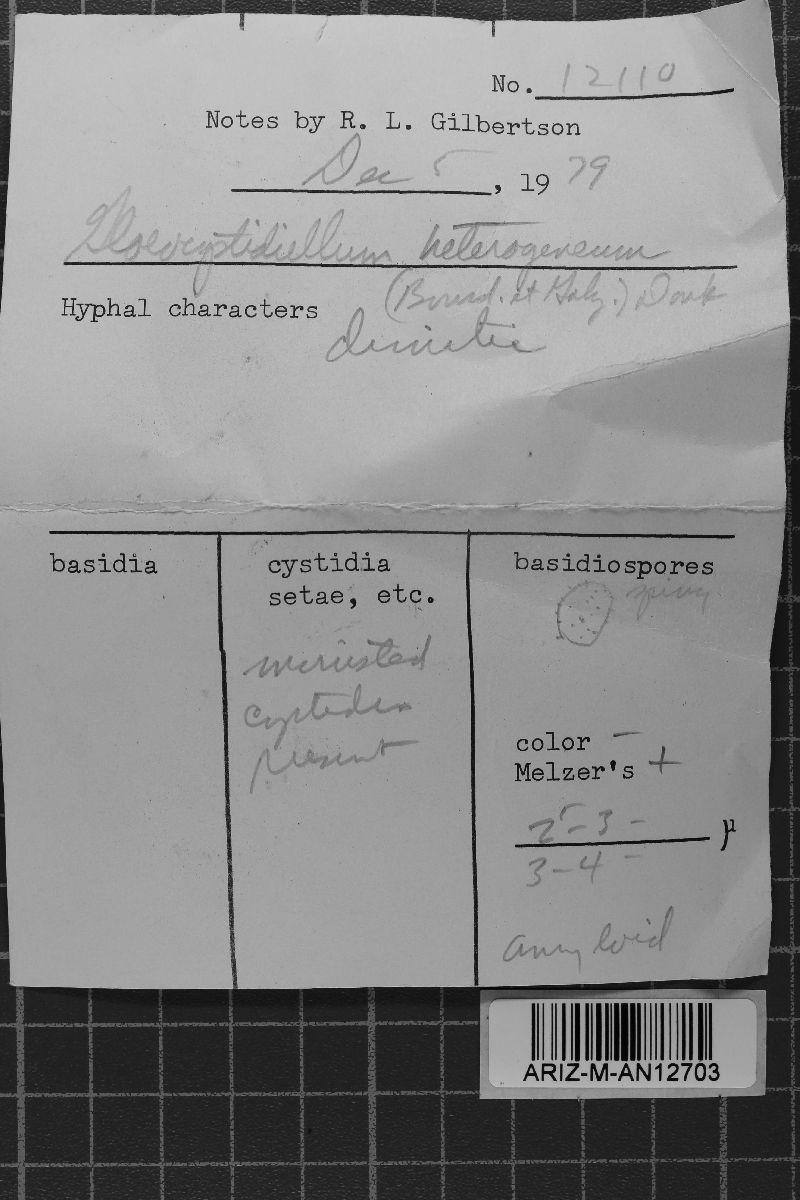 No. 12110
Notes by R. L. Gilbertson
Dec 5, 1979
Gloeocystidiellum heterogeneum
(Bourd. et Galz.) Donk
Hyphal characters
dimitic
basidia
cystidia
setae, etc.
incrusted
cystidia
present
basidiospores
spiny
color –
Melzer's +
3 –
µ
3–4 –
amyloid
ARIZ-M-AN12703